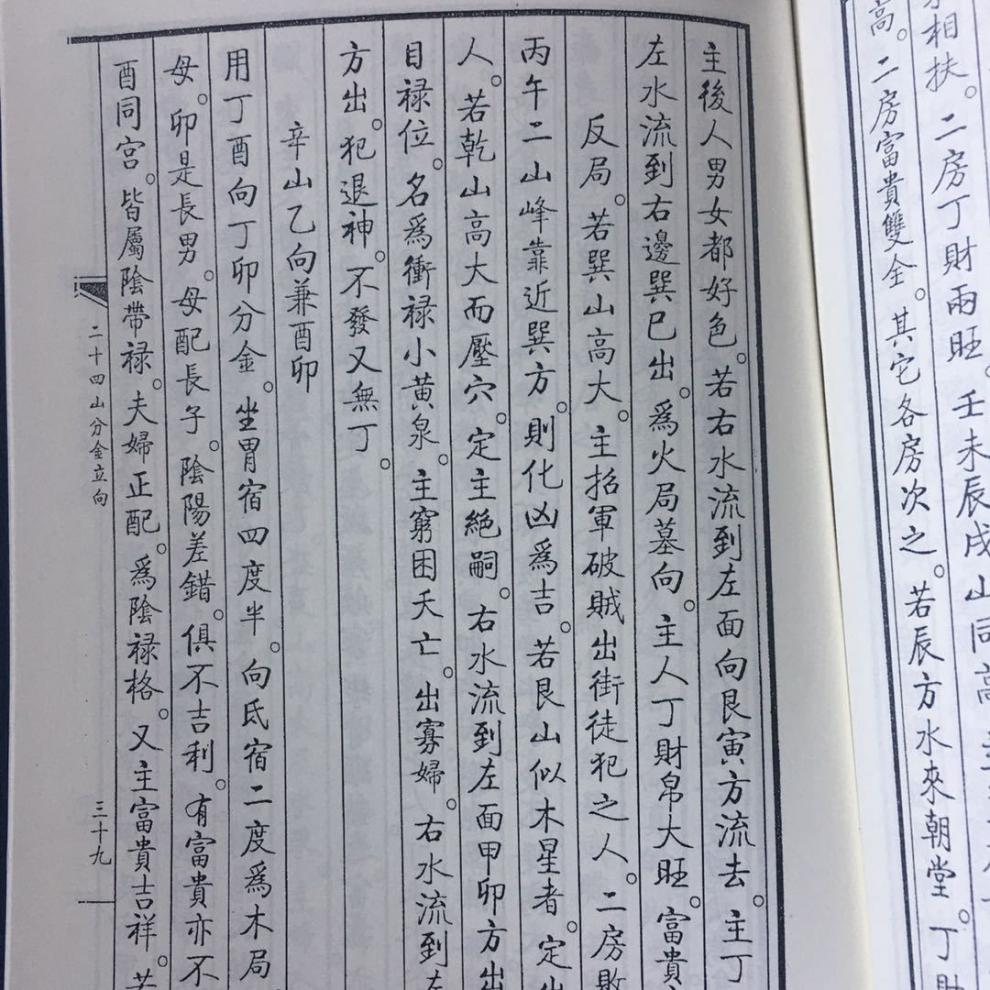 永相扶。二房丁財兩旺。壬未辰戌山同高
高。二房富貴雙全。其它各房次之。若辰方水來朝堂。丁財
主後人男女都好色。若右水流到左面向艮寅方流去。主丁
左水流到右邊巽巳出。為火局墓向。主人丁財帛大旺。富貴
反局。若巽山高大。主招軍破賊出街徒犯之人。二房敗
丙午二山峰靠近巽方。則化凶為吉。若艮山似木星者。定出
人。若乾山高大而壓穴。定主絕嗣。右水流到左面甲卯方出
目祿位。名為衝祿小黃泉。主窮困夭亡。出寡婦。右水流到左
方出。犯退神。不發又無丁。
辛山乙向兼酉卯
用丁酉向丁卯分金。坐胃宿四度半。向氐宿二度為木局
母。卯是長男。母配長子。陰陽差錯。俱不吉利。有富貴亦不
酉同宮。皆屬陰帶祿。夫婦正配。為陰祿格。又主富貴吉祥。若
二十四山分金立向
三十九